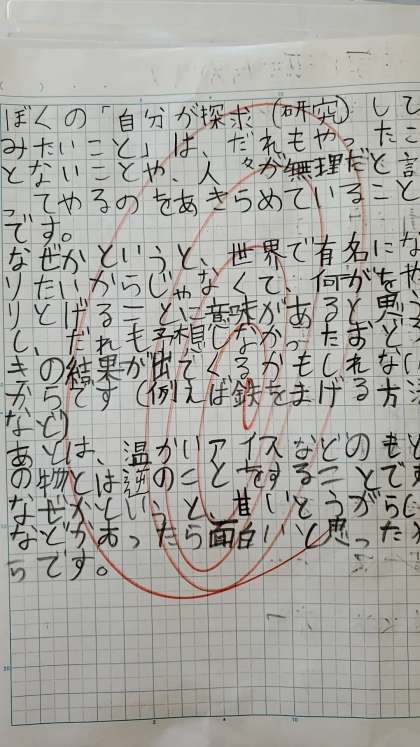 ぼくの「自分が探求(研究)して
みたいこと」は、だれもやったこ
とないことや、人々が無理だと言
ってやるのをあきらめていること
です。
なぜかというと、世界で有名にな
りたいからじゃなくて、何かをや
りとげることに意味があると思う
し、れも予想しなかったおどろ
きの結果が出るかもしれないな
からです(例えば鉄をまげる方法
など)
あとは、温かいアイスなどのもと
の物とは逆のことをすることです
なぜかというと、甘いとうがらし
などがあったら面白いと思ったか
らです。